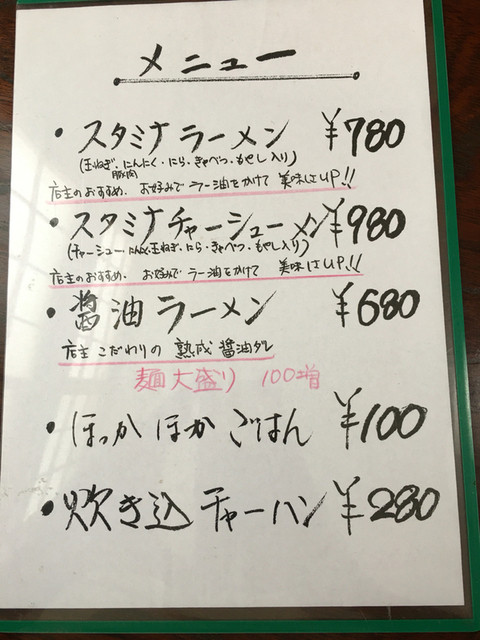 メニュー
・スタミナラーメン ¥780
(玉ねぎ・にんにく・にら・きゃべつ・もやし入り)
豚肉
店主のおすすめ. お好みでラー油をかけて 美味しさUP!!
・スタミナチャーシューメン ¥980
(チャーシュー・にんにく・玉ねぎ・にら・きゃべつ・もやし入り)
店主のおすすめ. お好みでラー油をかけて 美味しさUP!!
・醤油ラーメン ¥680
店主こだわりの熟成醤油ダレ
麺大盛り 100増
・ほっかほかごはん ¥100
・炊き込チャーハン ¥280